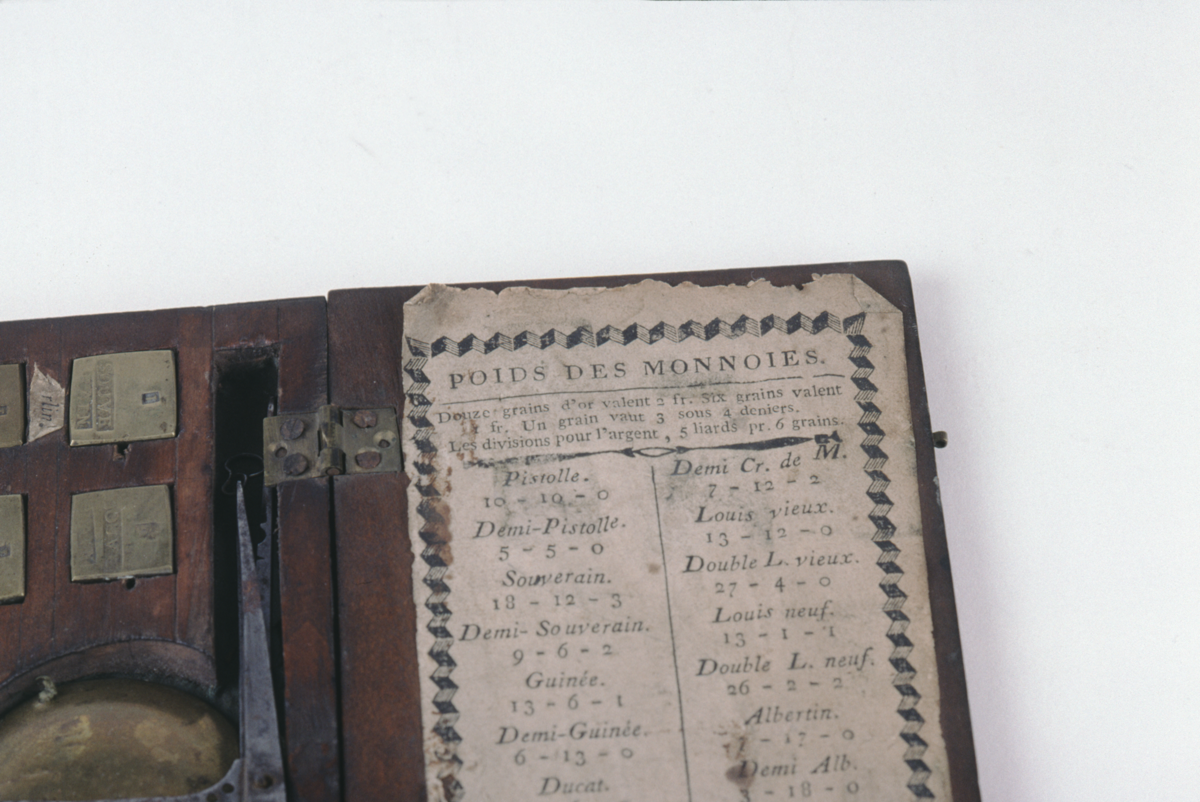 POIDS DES MONNOIES.
Douze grains d'or valent 2 fr. Six grains valent
1 fr. Un grain vaut 3 sous 4 deniers.
Les divisions pour l'argent, 5 liards pr. 6 grains.
Pistolle.
10 - 10 - 0
Demi-Pistolle.
5 - 5 - 0
Souverain.
18 - 12 - 3
Demi-Souverain.
9 - 6 - 2
Guinée.
13 - 6 - 1
Demi-Guinée.
6 - 13 - 0
Ducat.
Demi Cr. de M.
7 - 12 - 2
Louis vieux.
13 - 12 - 0
Double L. vieux.
27 - 4 - 0
Louis neuf.
13 - 1 - 1
Double L. neuf.
26 - 2 - 2
Albertin.
17 - 0
Demi Alb.
18 - 0